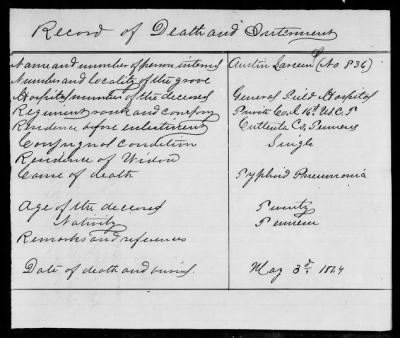 Record of Death and Interment
Name and number of person interred Austin (No 836)
Number and locality of the grave
Hospital number of the deceased General Field Hospital
Regiment rank and company Private Co. 16th U.S.C.T
Residence before enlistment Co, Tenness
Conjugal condition Single
Residence of Widow
Cause of death Typhoid Pneumonia
Age of the deceased Twenty
Nativity Tennessee
Remarks and references
Date of death and burial May 3rd 1864